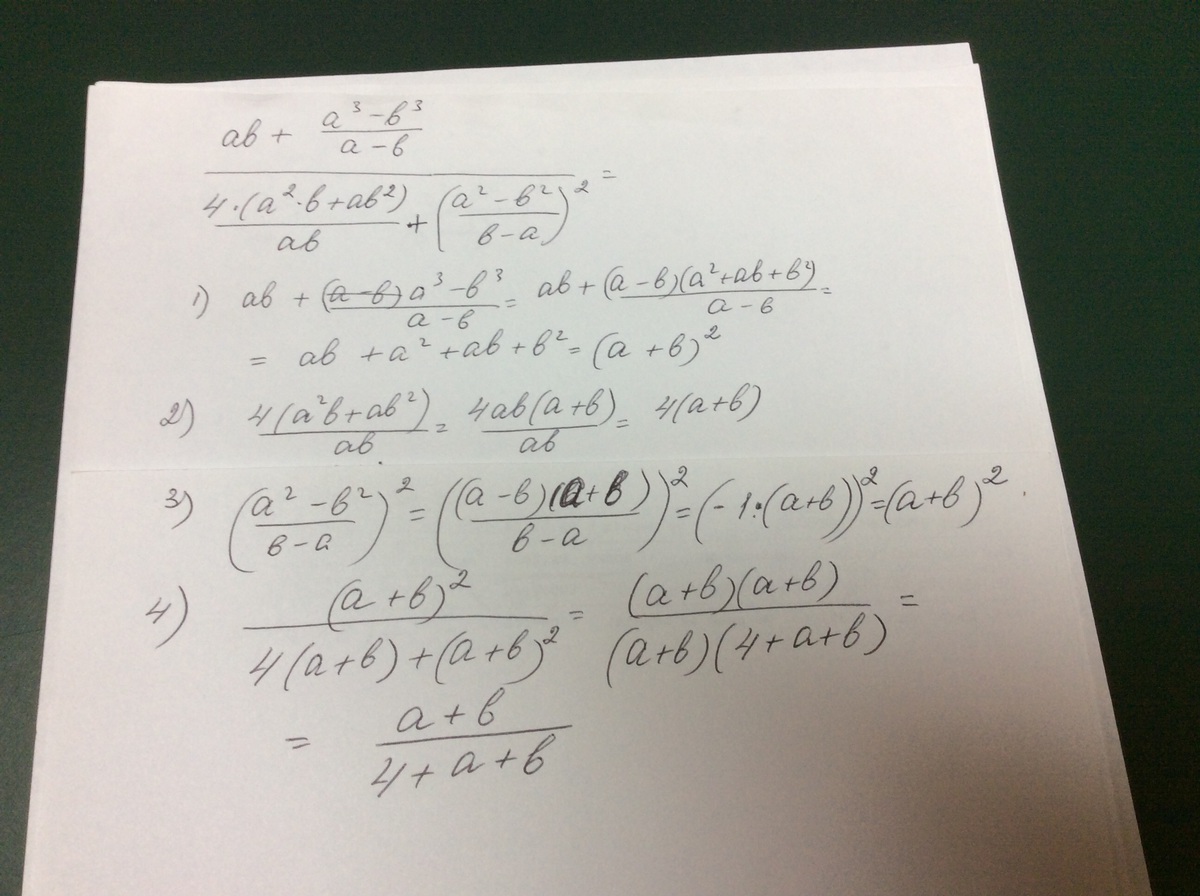 ab + (a³ – b³)/(a – b)
4·(a²·b + ab²)/ab + ((a² – b²)/(b – a))² =
1) ab + (a³ – b³)/(a – b) = ab + (a – b)(a² + ab + b²)/(a – b) =
= ab + a² + ab + b² = (a + b)²
2) 4(a²b + ab²)/ab = 4ab(a + b)/ab = 4(a + b)
3) ((a² – b²)/(b – a))² = ((a – b)(a + b)/(b – a))² = (– 1·(a + b))² = (a + b)².
4) (a + b)²/(4(a + b) + (a + b)²) = (a + b)(a + b)/((a + b)(4 + a + b)) =
= (a + b)/(4 + a + b)